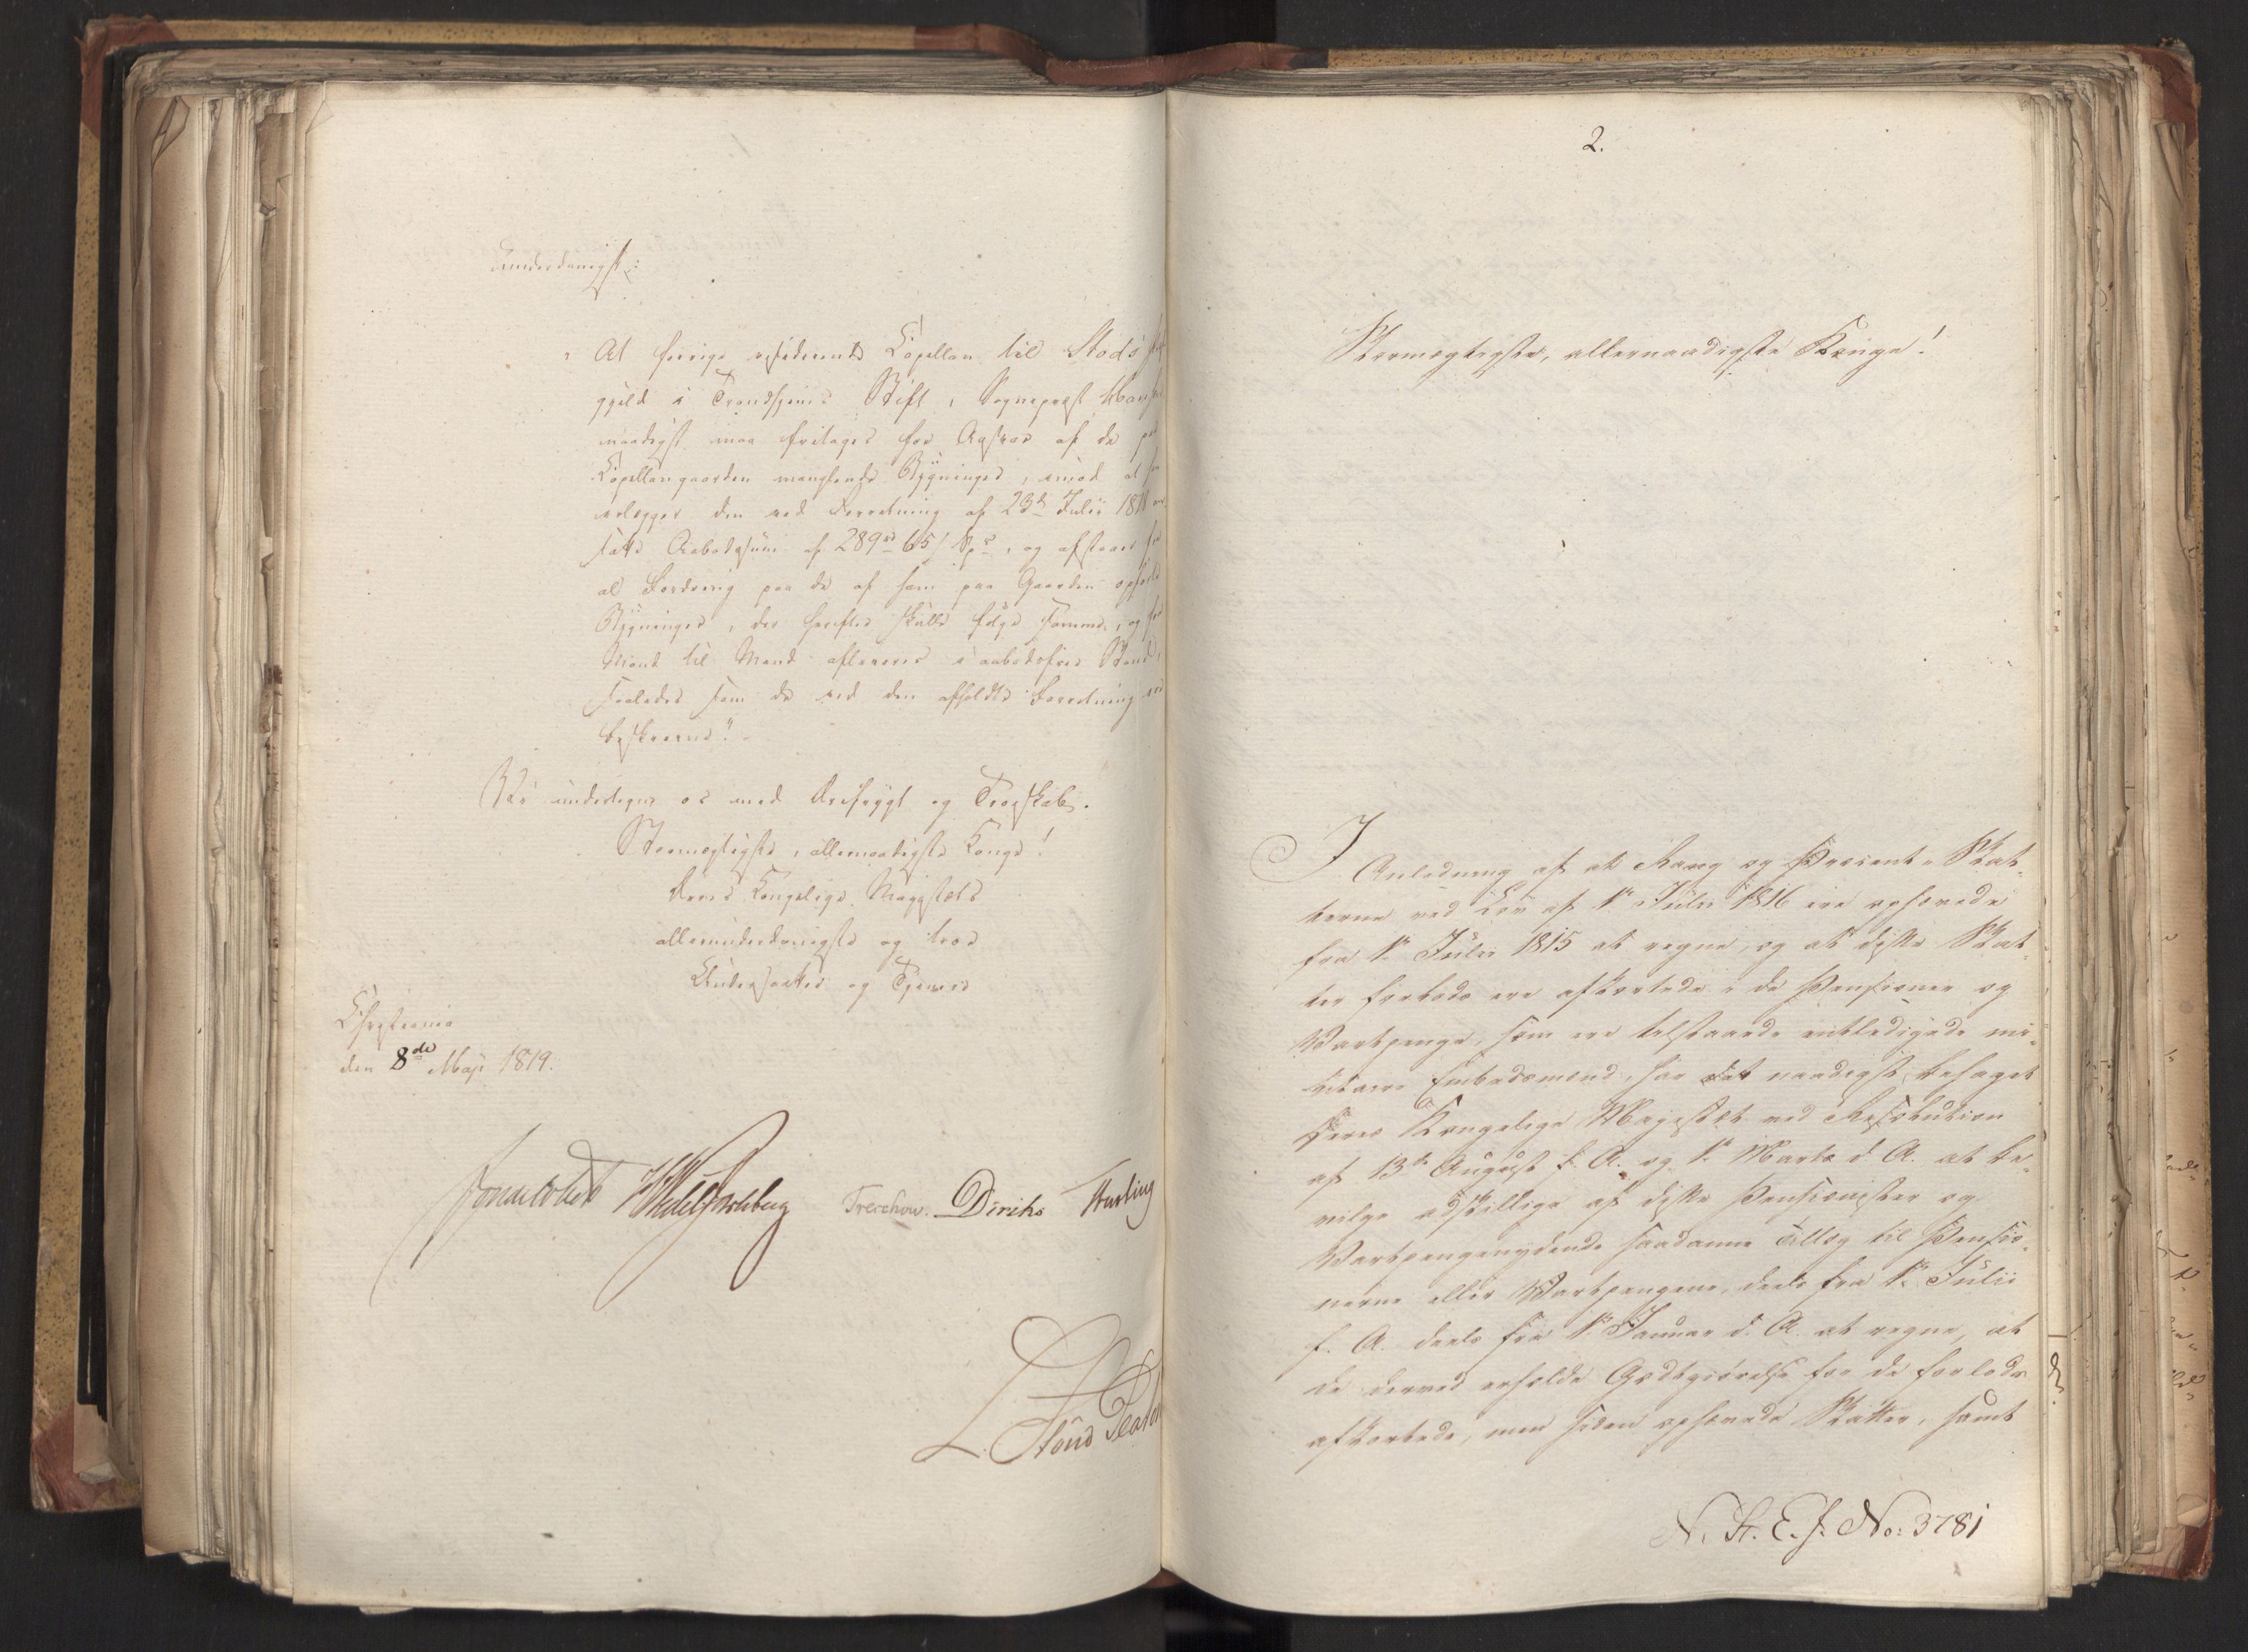 underdanigst:
"At forrige residerende Capellan til Stods
gjeld i Trondhjems Stift, Sognepræst
naadigst maa fritages for Ansvar af de paa
Capellangaarden manglende Bygninger, imod at han
erlægger den ved Forretning af 23de Julii 1811
satte Aabodssum af 289 rd 65 s, og afstaaer fra
al Fordring paa de af ham paa Gaarden opførte
Bygninger, der herefter skulle følge samme, og fra
Mand til Mand afleveres i aabodsfrie Stand,
saaledes som de ved den afholdte Forretning ere
beskrevne".
Vi undertegne os med Ærefrygt og Troeskab.
Stormægtigste, allernaadigste Konge!
Deres Kongelige Majestæts
allerunderdanigste og troe
Undersaatter og Tjenere
Christiania
den 8de Maji 1819.
Sommerhielm HWedelJarlsberg Treschow. Diriks
2.
Stormægtigste, allernaadigste Konge!
I Anledning af at Rang og Procent-Skat-
terne ved Lov af 1ste Julii 1816 ere ophævede
fra 1ste Julii 1815 at regne, og at disse Skat-
ter forlods ere afkortede i de Pensioner og
Vartpenge, som ere tilstaaede entledigede mi-
litaire Embedsmænd, har det naadigst behaget
Deres Kongelige Majestæt ved Resolution
af 13de August f. A. og 1ste Marts d. A. at be-
vilge adskillige af disse Pensionister og
Vartpengenydende saadanne Tillæg til Pensio-
nerne eller Vartpengene, deels fra 1ste Julii
f. A. deels fra 1ste Januar d. A. at regne, at
de derved erholde Godtgjørelse for de forlods
afkortede, men siden ophævede Skatter, samt
N. St. E. f. No: 3781